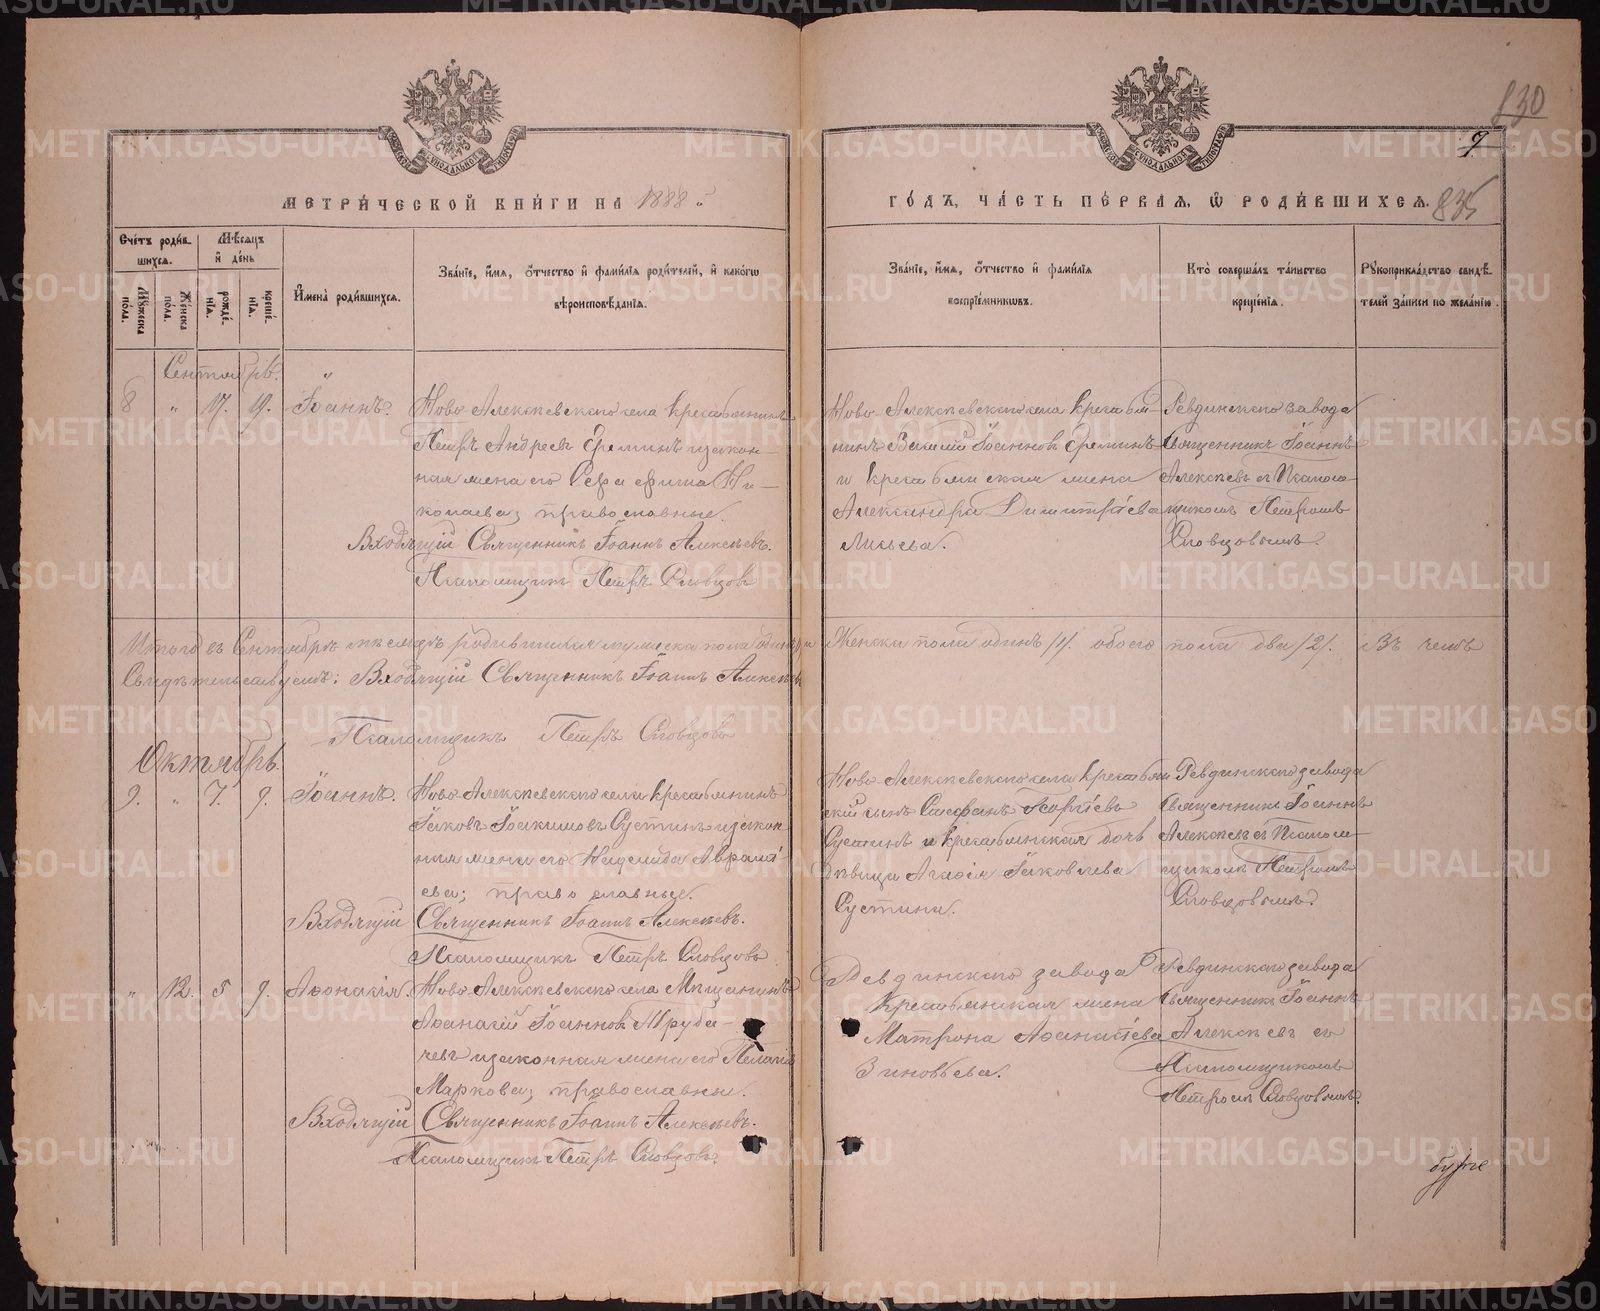 830
9
МЕТРИ́ЧЕСКОЙ КНИ́ГИ НА 1888 й
ГО́ДЪ, ЧА́СТЬ ПЕ́РВАЯ, Ѡ РОДИ́ВШИХСЯ.
835
Сче́тъ роди́в-
шихся.
Мѣ́сяцъ
и҆ де́нь
Му́жеска
по́ла.
Же́нска
по́ла.
рожде́-
нїѧ.
креще́-
нїѧ.
И҆мена̀ роди́вшихся.
Зва́нїе, и҆́мя, ѻ҆́тчество и҆ фами́лїя роди́телей, и҆ како́гѡ
вѣроисповѣ́данїя.
Зва́нїе, и҆́мя, ѻ҆́тчество и҆ фами́лїя
воспрїе́мниковъ.
Кто̀ соверша́лъ та́инство
креще́нїя.
Рꙋкоприкла́дство свидѣ́-
телей за́писи по жела́нїю.
Сентябрь.
8 " 17. 19. Іоаннъ. Ново Алексѣевскаго села крестьянинъ
Петръ Андреевъ Ереминъ и законная
жена его Серафима Ни-
колаева; православные.
Входящій Священникъ Іоаннъ Алексѣевъ.
Псаломщикъ Петръ Словцовъ
Ново-Алексѣевскаго села крестья-
нинъ Василій Іоанновъ Ереминъ
и крестьянская жена
Александра Димитріева
Ревдинскаго завода
Священникъ Іоаннъ
Алексѣевъ съ Псалом-
щикомъ Петромъ
Словцовымъ.
Итого въ Сентябрѣ мѣсяцѣ родившихся мужеска пола одинъ Женска пола одинъ /1/. обоего пола два /2/. Въ чемъ
Свидѣтельствуемъ: Входящій Священникъ Іоаннъ Алексѣевъ
Псаломщикъ Петръ Словцовъ
Октябрь.
9. " 7. 9. Іоаннъ. Ново Алексѣевскаго села крестьянинъ
Іаковъ Іоакимовъ Сустинъ и закон-
ная жена его Авраміе-
ва; православные.
Входящій Священникъ Іоаннъ Алексѣевъ.
Псаломщикъ Петръ Словцовъ
Ново Алексѣевскаго села крестьян-
скій сынъ Стефанъ Георгіевъ
Сустинъ и крестьянская дочь
дѣвица Агафія Іаковлева
Сустина.
Ревдинскаго завода
Священникъ Іоаннъ
Алексѣевъ съ Псалом-
щикомъ Петромъ
Словцовымъ.
" 12. 5 9. Аѳонасія. Ново Алексѣевскаго села Мѣщанинъ
Аѳанасій Іоанновъ Труба-
чевъ и законная жена его Пелагія
Маркова; православные.
Входящій Священникъ Іоаннъ Алексѣевъ.
Псаломщикъ Петръ Словцовъ.
Ревдинскаго завода
Крестьянская жена
Матрона Аѳанасіева
Зиновьева.
Ревдинскаго завода
Священникъ Іоаннъ
Алексѣевъ съ
Псаломщикомъ
Петромъ Словцовымъ.